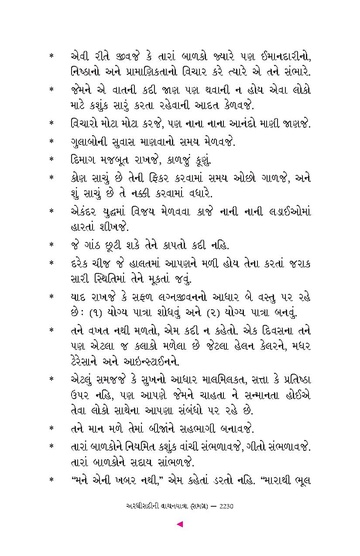 * એવી રીતે જીવજે કે તારાં બાળકો જ્યારે પણ ઈમાનદારીનો,
નિષ્ઠાનો અને પ્રામાણિકતાનો વિચાર કરે ત્યારે એ તને સંભારે.
* જેમને એ વાતની કદી જાણ પણ થવાની ન હોય એવા લોકો
માટે કશુંક સારું કરતા રહેવાની આદત કેળવજે.
* વિચારો મોટા મોટા કરજે, પણ નાના નાના આનંદો માણી જાણજે.
* ગુલાબોની સુવાસ માણવાનો સમય મેળવજે.
* દિમાગ મજબૂત રાખજે, કાળજું કૂણું.
* કોણ સાચું છે તેની ફિકર કરવામાં સમય ઓછો ગાળજે, અને
શું સાચું છે તે નક્કી કરવામાં વધારે.
* એકંદર યુદ્ધમાં વિજય મેળવવા કાજે નાની નાની લડાઈઓમાં
હારતાં શીખજે.
* જે ગાંઠ છૂટી શકે તેને કાપતો કદી નહિ.
* દરેક ચીજ જે હાલતમાં આપણને મળી હોય તેના કરતાં જરાક
સારી સ્થિતિમાં તેને મૂકતાં જવું.
* યાદ રાખજે કે સફળ લગ્નજીવનનો આધાર બે વસ્તુ પર રહે
છે: (૧) યોગ્ય પાત્રા શોધવું અને (૨) યોગ્ય પાત્રા બનવું.
* તને વખત નથી મળતો, એમ કદી ન કહેતો. એક દિવસના તને
પણ એટલા જ કલાકો મળેલા છે જેટલા હેલન કેલરને, મધર
ટેરેસાને અને આઇન્સ્ટાઈનને.
* એટલું સમજજે કે સુખનો આધાર માલમિલકત, સત્તા કે પ્રતિષ્ઠા
ઉપર નહિ, પણ આપણે જેમને ચાહતા ને સન્માનતા હોઈએ
તેવા લોકો સાથેના આપણા સંબંધો પર રહે છે.
* તને માન મળે તેમાં બીજાંને સહભાગી બનાવજે.
* તારાં બાળકોને નિયમિત કશુંક વાંચી સંભળાવજે, ગીતો સંભળાવજે.
તારાં બાળકોને સદાય સાંભળજે.
* “મને એની ખબર નથી,” એમ કહેતાં ડરતો નહિ. “મારાથી ભૂલ
અરધીસદીની વાચનયાત્રા (સમગ્ર) — 2230